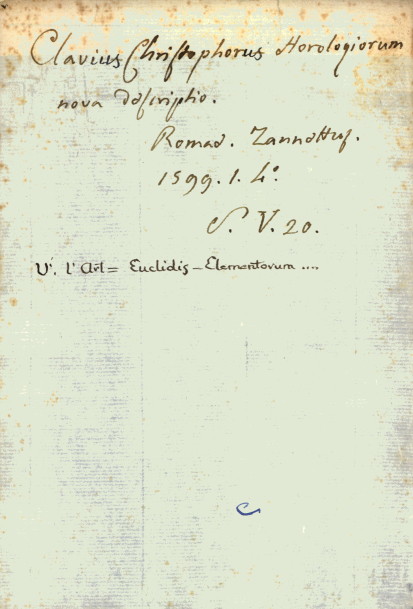 Clavius Christophorus Horologiorum
nova descriptio.
Romae. Zannettus.
1599. 1. 4°.
S. V. 20.
Vi. l'Art = Euclidis - Elementorum ....